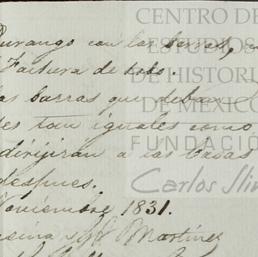 Durango con las
Factura de todo.
las barras que deban
tan iguales como
dirijiran a las Casas
despues.
Noviembre 1831.
Martinez
CENTRO DE
ESTUDIOS
DE HISTORI
DE MEXICO
FUNDACIÓ
Carlos Slim